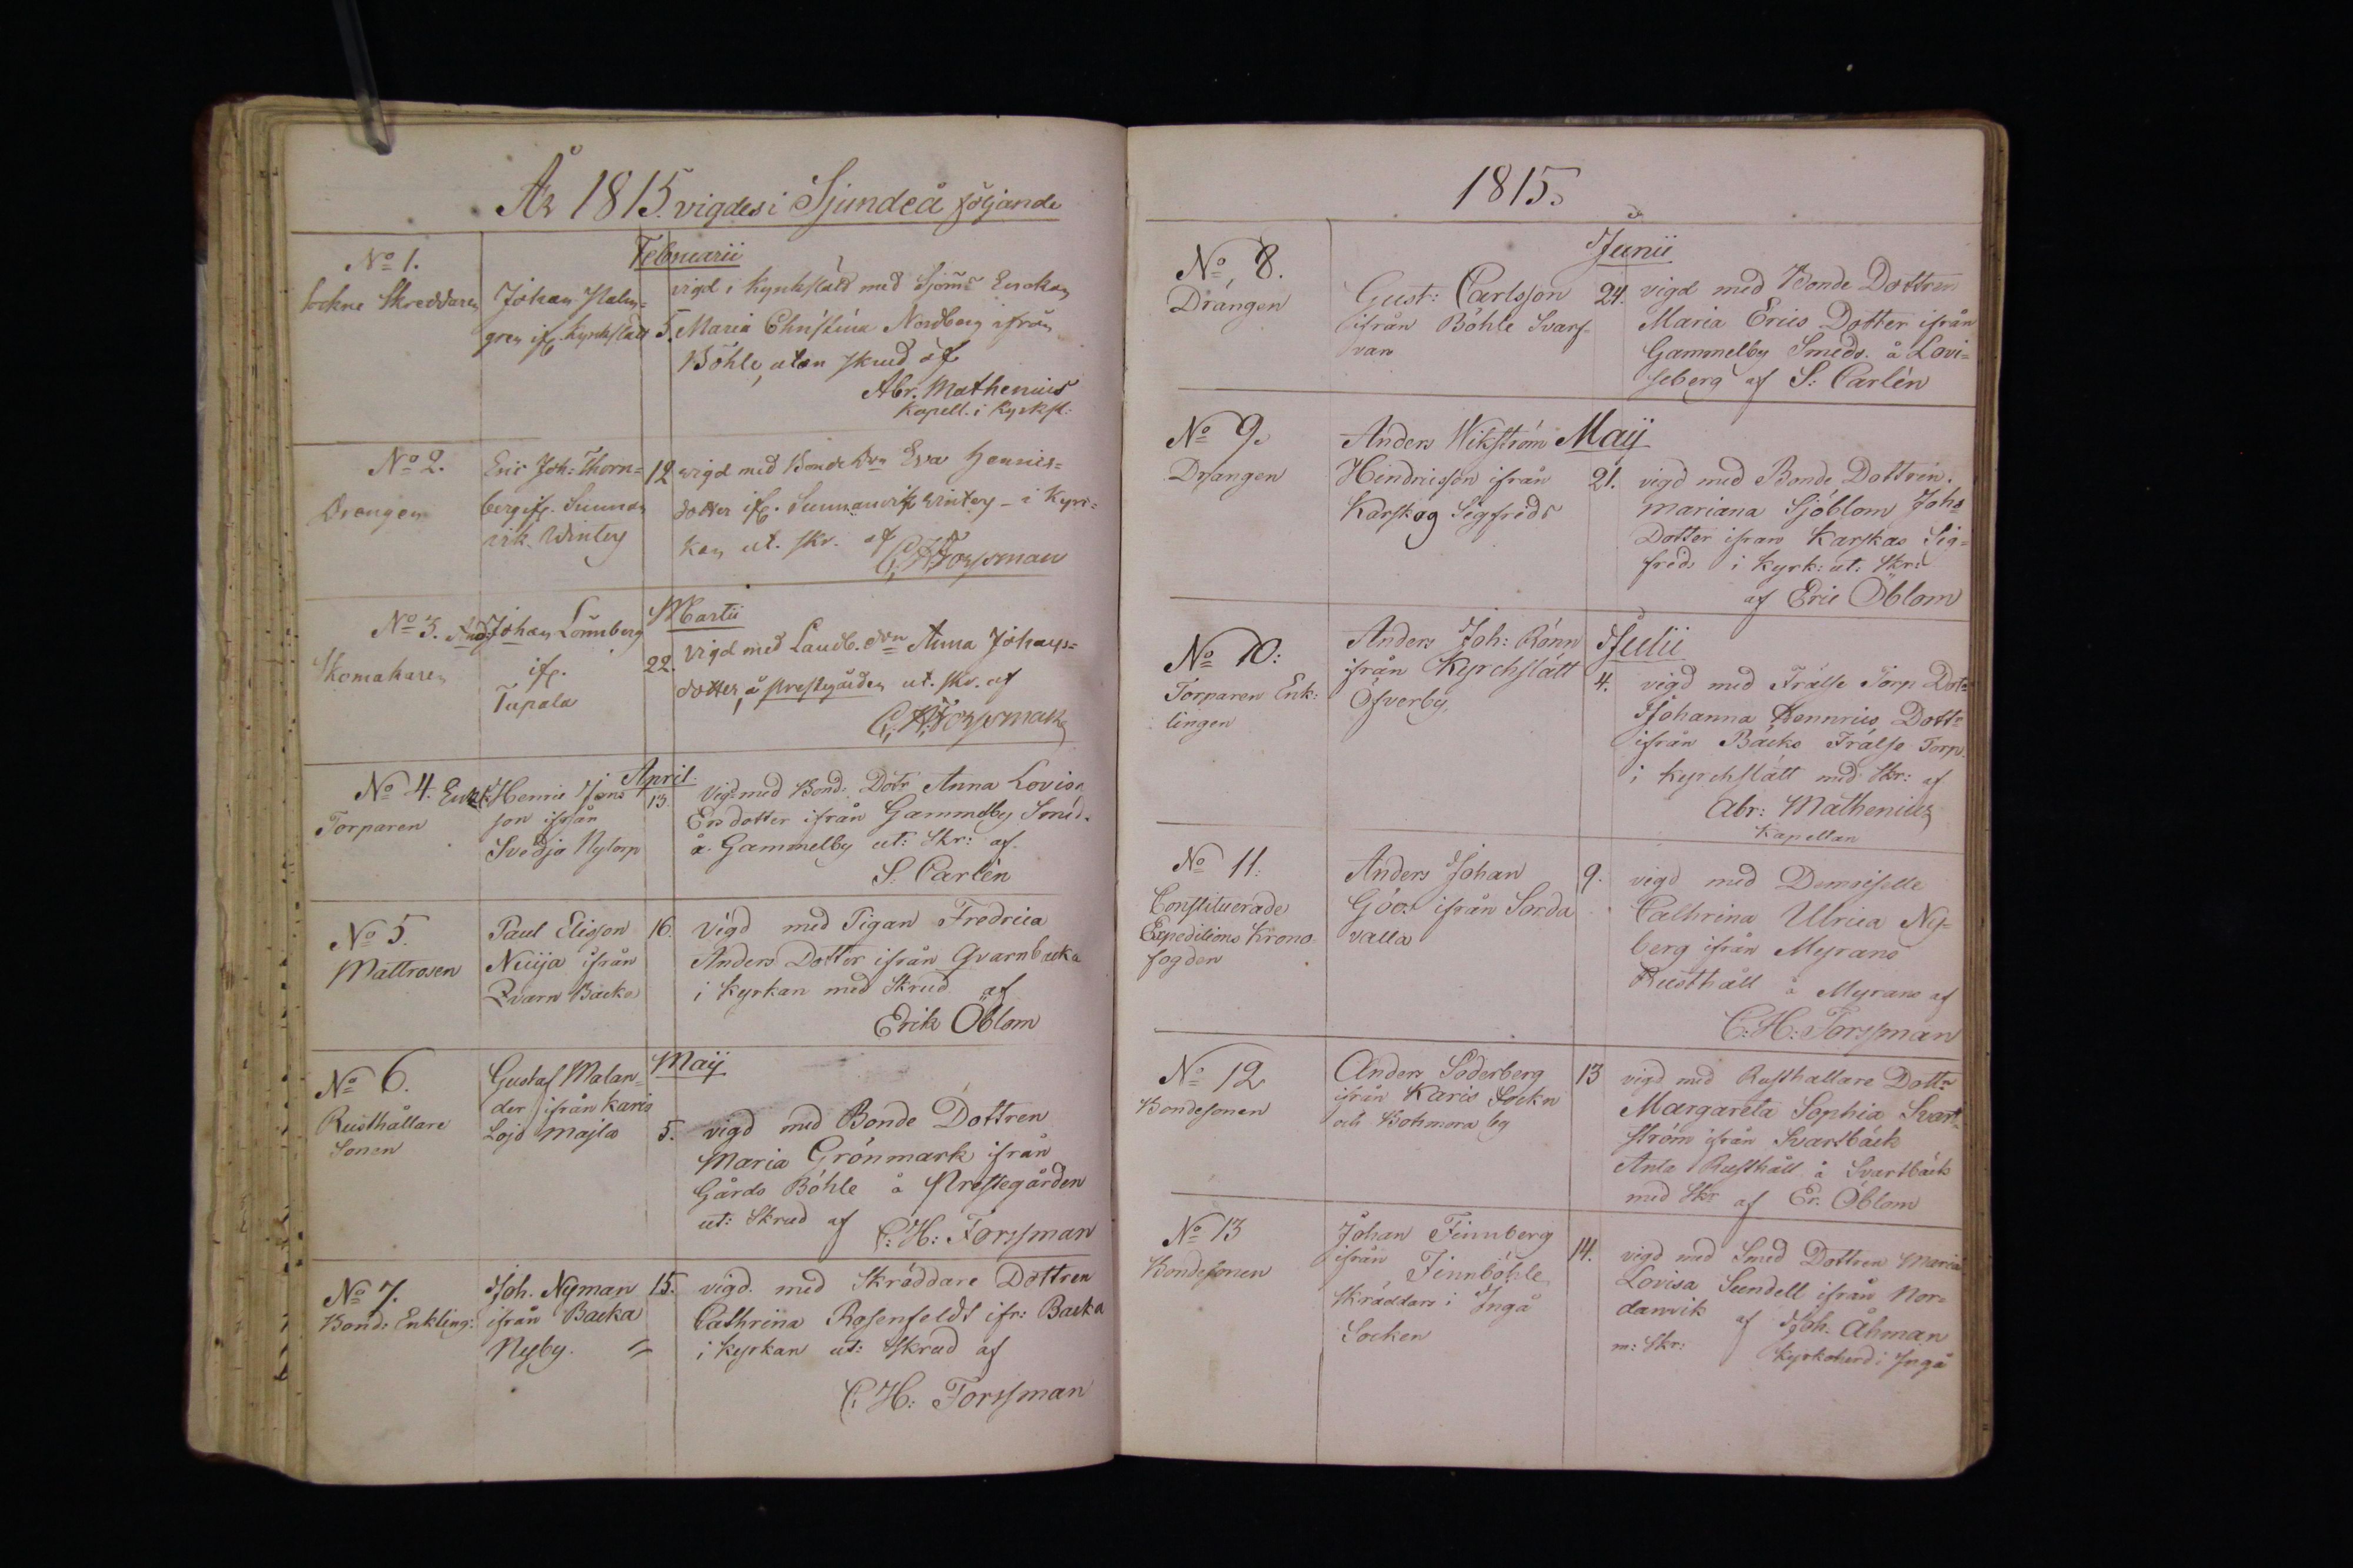 År 1815. vigdes i Sjundeå följande
Februarii
No 1.
Sockne Skreddaren
Johan Malm=
gren ifr. Kyrckslätt
5.
vigd i Kyrkslätt med Sjöms Enckan
Maria Christina Nordberg ifrån
Böhle, utan skrud af
Abr. Mathenius
Kapell. i Kyrksl:
No 2.
Drengen
Eric Joh: Thorn=
berg ifr. Sunnan
vik Winters
12
vigd med Bonde Drn Eva Henrics=
dotter ifr. Sunnanvik Winters - i Kyr=
kan ut. skr. af
C. H. Forssman
Martii
No 3. And:
Skomakaren
Johan Lönnberg
ifr.
Tupala
22.
vigd med Landb. drn Anna Johans=
dotter, å Prestegården ut. skr. af
C. H. Forssman
April
No 4. Enkl:
Torparen
Henric Jöns
son ifrån
Svedja Nytorp
13.
Vigd med Bond. Dotr Anna Lovisa
Ersdotter ifrån Gammelby Smed.
å Gammelby ut: Skr: af.
S. Carlén
No 5.
Mattrosen
Paul Elisson
Neüja ifrån
Qvarn Backa
16.
Vigd med Pigan Fredrica
Anders Dotter ifrån Qvarnbacka
i Kyrkan med Skrud af
Erik Öblom
Maij
No 6.
Rusthållare
Sonen
Gustaf Malan=
der ifrån Karis
Lojo Majla
5.
vigd med Bonde Dottren
Maria Grönmark ifrån
Gårds Böhle å Prestegården
ut: Skrud af C: H: Forssman
No 7.
Bond: Enkling:
Joh. Nyman
ifrån Backa
Nyby.
15.
vigd. med Skräddare Dottren
Cathrina Rosenfeldt ifr: Backa
i Kyrkan ut: Skrud af
C: H: Forssman
1815.
Junii
No 8.
Drängen
Gust: Carlsson
ifrån Böhle Svarf=
van
24.
vigd med Bonde Dottren
Maria Erics Dotter ifrån
Gammelby Smeds. å Lovi=
seberg af S: Carlén
No 9.
Drängen
Anders Wikström
Hindricsson ifrån
Karskog Sigfreds
Maij
21.
vigd med Bonde Dottren.
Mariana Sjöblom Johs
Dotter ifrån Karskas Sig=
freds i Kyrk: ut: Skr:
af Eric Öblom
No 10:
Torparen Enk:
lingen
Anders Joh: Rönn
ifrån Kyrchslätt
Öfverby.
Julii
4.
vigd med Frälse Torp Dotr
Johanna Hennrics Dottr
ifrån Bäcks Frälse Torp.
i Kyrchslätt med Skr: af
Abr: Mathenius
Kapellan
No 11:
Constituerade
Expeditions Krono
fogden
Anders Johan
Göös ifrån Sorda
valla
9.
vigd med Demoiselle
Cathrina Ulrica Ny=
berg ifrån Myrans
Rusthåll å Myrans af
C: H: Forssman
No 12
Bondesonen
Anders Söderberg
ifrån Karis Sockn
och Bohmora by
13
vigd med Rusthållare Dottr
Margareta Sophia Svart=
ström ifrån Svartbäck
Ants Rusthåll å Svartbäck
med Skr af Er. Öblom
No 13
Bondesonen
Johan Finnberg
ifrån Finnböhle
Skräddars i Ingå
Socken
14.
vigd med Smed Dottren Maria
Lovisa Sundell ifrån Nor=
danvik af Joh: Åhman
m: Skr: Kyrkoherd i Ingå